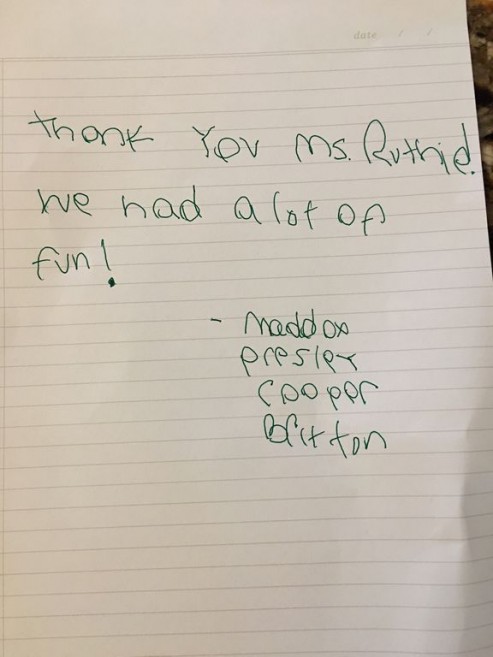 date / /
Thank You Ms. Ruthie.
we had a lot of
fun!
- Maddox
Presley
Cooper
Britton